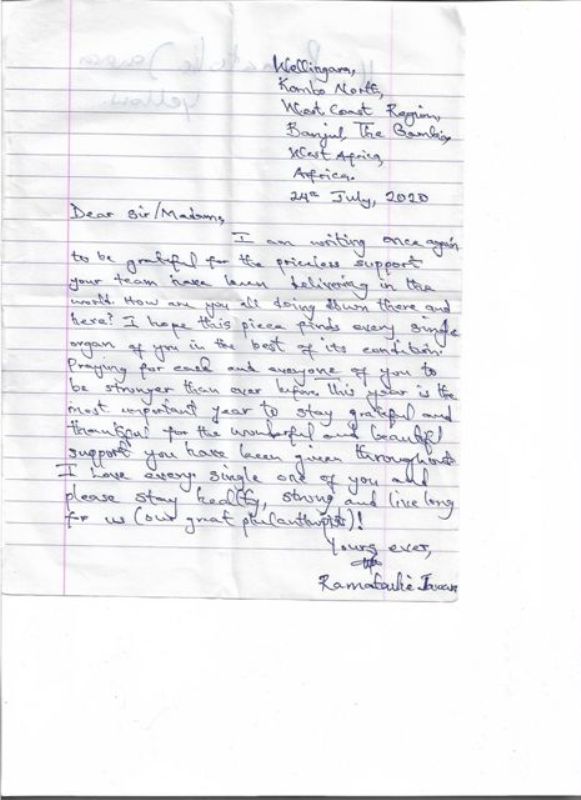 Wellingara,
Kombo North,
West Coast Region,
Banjul, The Gambia,
West Africa,
Africa.
24th July, 2020
Dear Sir/Madams,
I am writing once again
to be grateful for the priceless support
your team have been delivering in the
world. How are you all doing down there and
here? I hope this piece finds every single
organ of you in the best of its condition.
Praying for each and everyone of you to
be stronger than ever before. This year is the
most important year to stay grateful and
thankful for the wonderful and beautiful
support you have been given throughout
I Love every single one of you and
please stay healthy, strong and live long
for us (our great philanthropist)!
Yours ever,
Ramatoulie